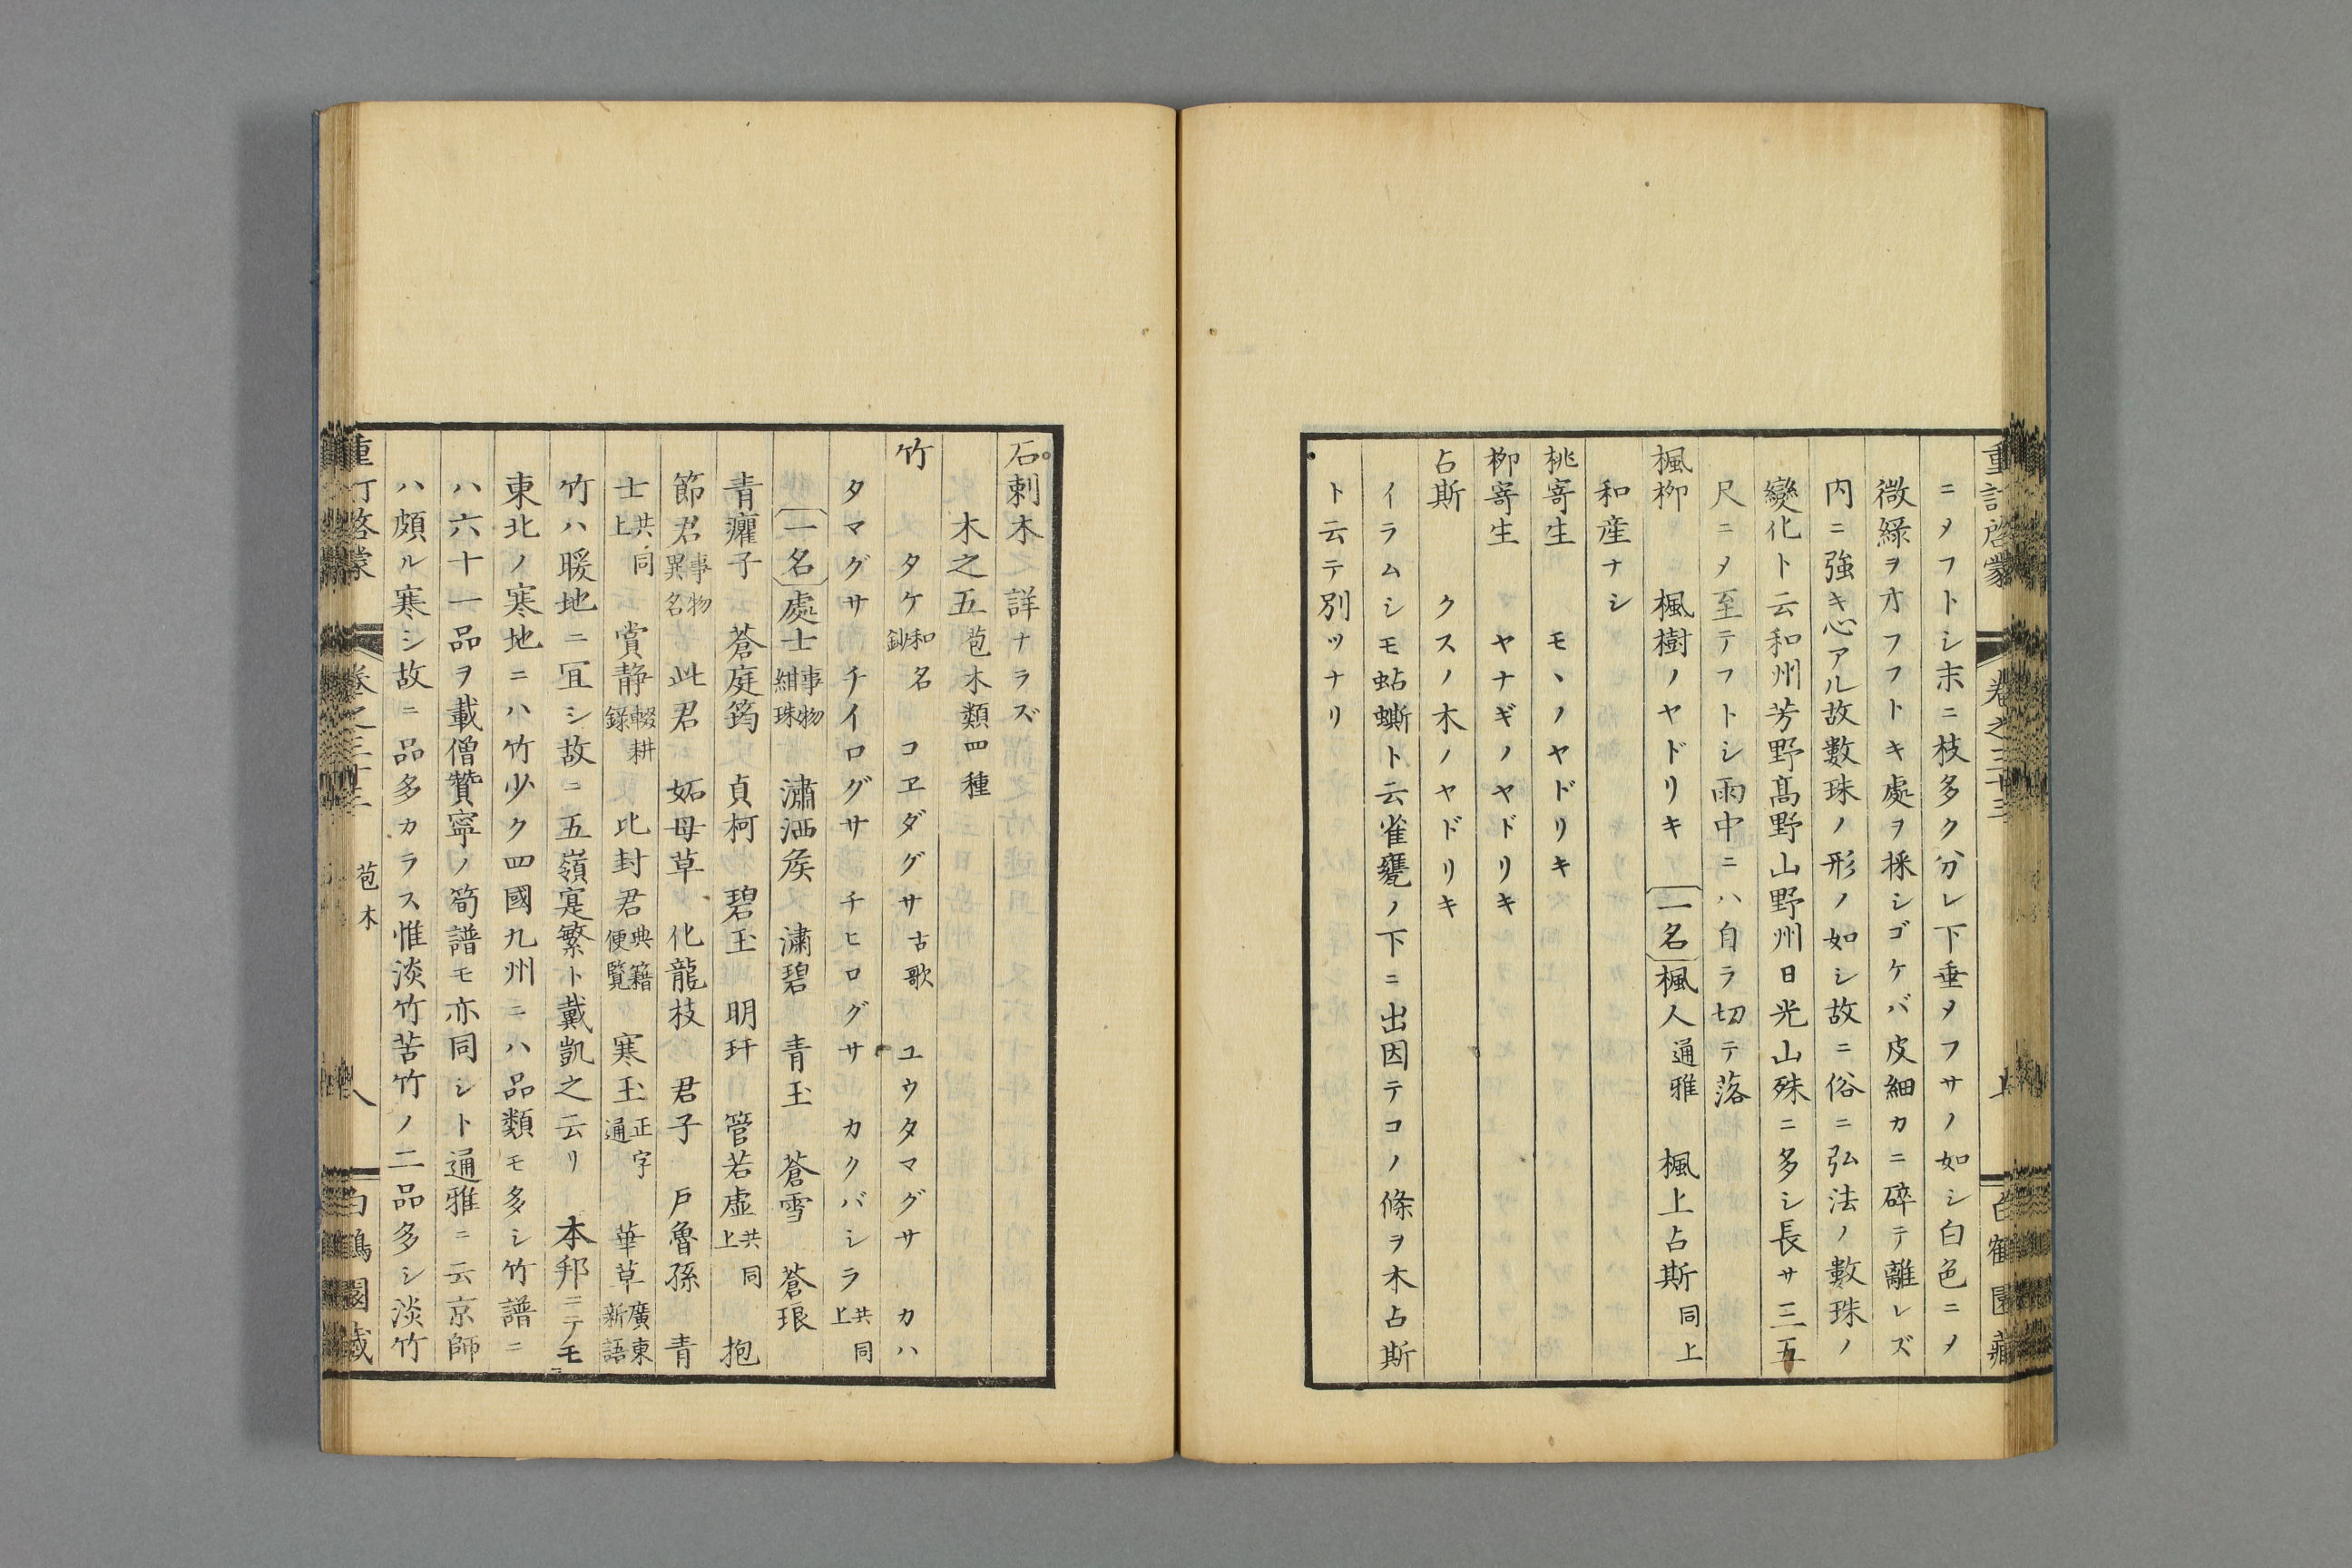 重訂啓蒙 卷之三十三 上 白鶴園藏
ニメフトシ末ニ枝多ク分レ下垂メフサノ如シ白色ニメ
微綠ヲオフフトキ處ヲ採シゴケバ皮細カニ碎テ離レズ
内ニ強キ心アル故數珠ノ形ノ如シ故ニ俗ニ弘法ノ數珠ノ
變化ト云和州芳野髙野山野州日光山殊ニ多シ長サ三五
尺ニメ至テフトシ雨中ニハ自ラ切テ落
楓栁 楓樹ノヤドリキ 一名 楓人通雅 楓上占斯同上
和産ナシ
桃寄生 モヽノヤドリキ
栁寄生 ヤナギノヤドリキ
占斯 クスノ木ノヤドリキ
イラムシモ蛅蟖ト云雀甕ノ下ニ出因テコノ條ヲ木占斯
ト云テ別ツナリ
石刺木 詳ナラズ
木之五 苞木類四種
竹 タケ和名鈔 コヱダグサ古歌 ユウタマグサ カハ
タマグサ チイログサ チヒログサ カクバシラ共同上
一名 處士事物紺珠 瀟洒矦 潚碧 青玉 蒼雪 蒼琅
青㿔子 蒼庭筠 貞柯 碧玉 明玕 管若虚共同上 抱
節君事物異名 此君 妬母草 化龍枝 君子 戸魯孫 青
士共同上 賞静輟耕錄 比封君典籍便覧 寒玉正字通 華草廣東新語
竹ハ暖地ニ宜シ故ニ五嶺寔繁ト戴凱之云リ 本邦ニテモ
東北ノ寒地ニハ竹少ク四國九州ニハ品類モ多シ竹譜ニ
ハ六十一品ヲ載僧贊寧ノ筍譜モ亦同シト通雅ニ云京師
ハ頗ル寒シ故ニ品多カラス惟淡竹苦竹ノ二品多シ淡竹
重訂啓蒙 卷之三十三 苞木 八 白鶴園藏